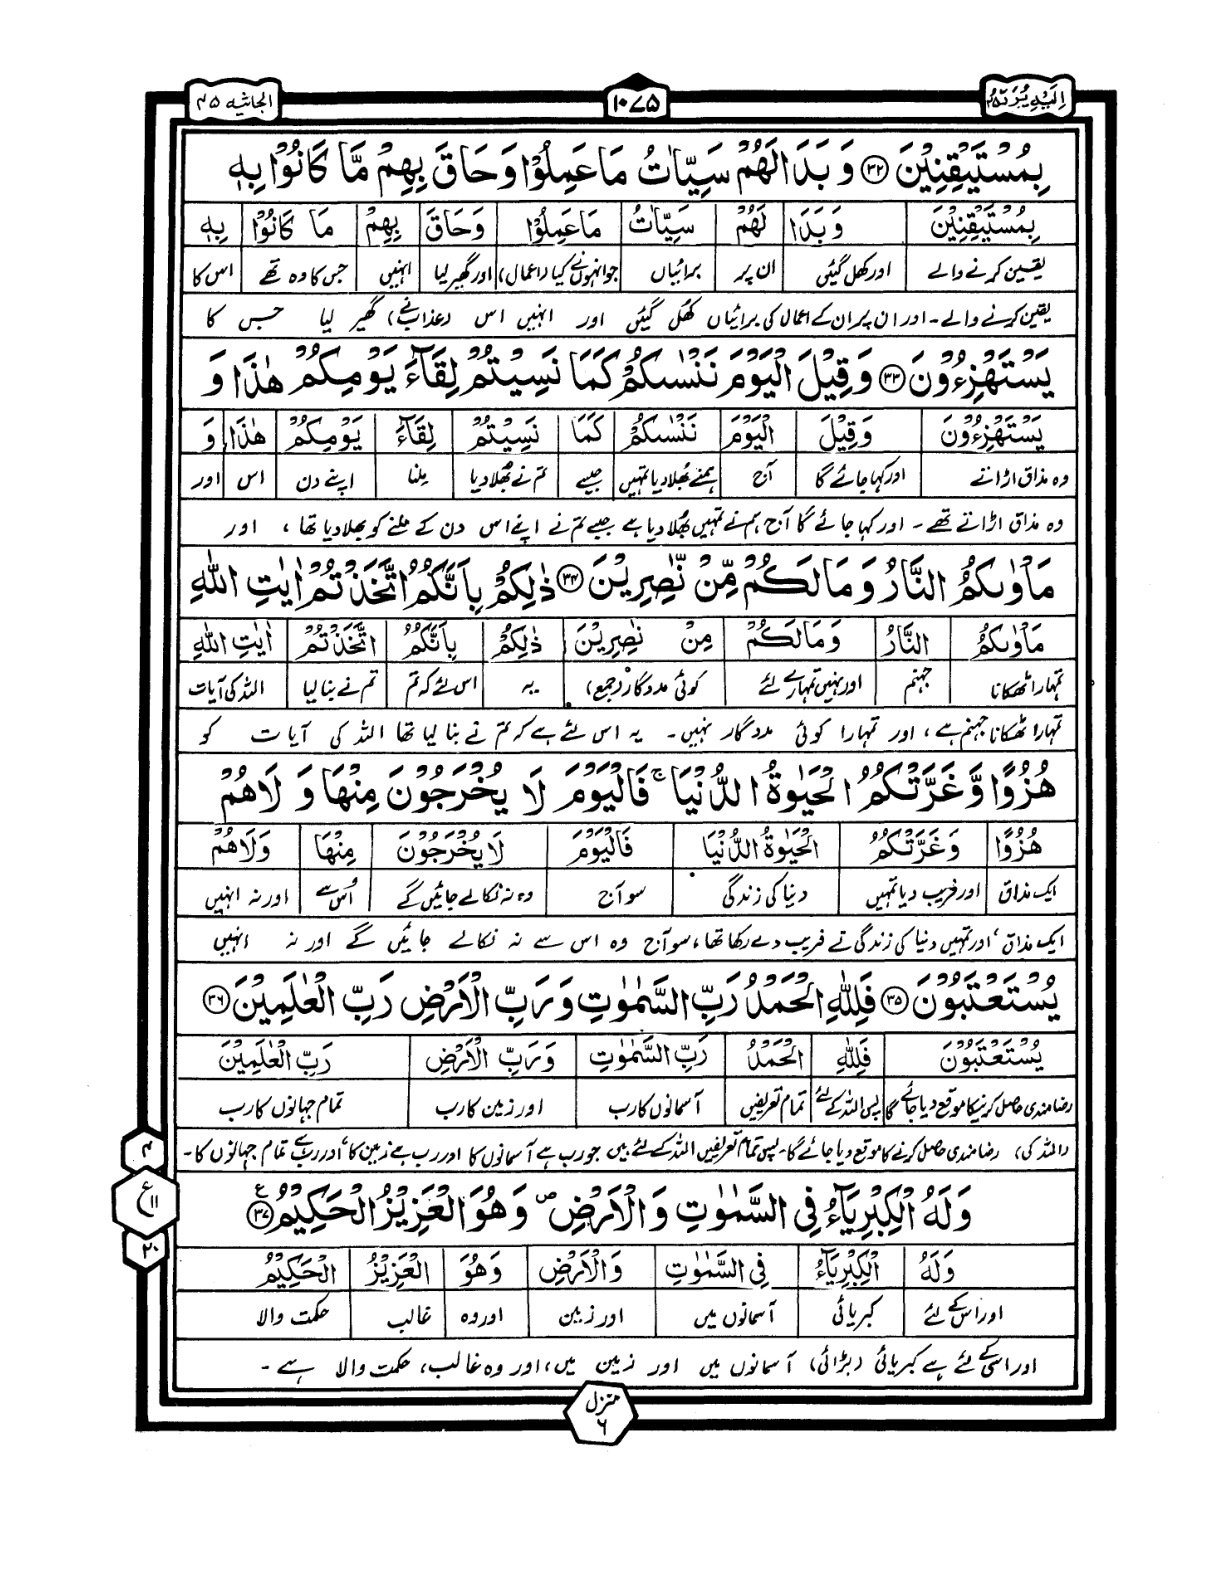 الجاثیہ ۴۵ ۱۰۷۵ اِلَیْہِ یُرَدُّ ۲۵
بِمُسْتَيْقِنِيْنَ ۝۳۲ وَ بَدَا لَهُمْ سَيِّاٰتُ مَا عَمِلُوْا وَ حَاقَ بِهِمْ مَّا كَانُوْا بِهٖ
بِمُسْتَيْقِنِيْنَ وَبَدَا لَهُمْ سَيِّاٰتُ مَا عَمِلُوْا وَحَاقَ بِهِمْ مَا كَانُوْا بِهٖ
یقین کرنے والے اور کھل گئیں ان پر برائیاں جو انہوں نے کیا (اعمال) اور گھیر لیا انہیں جس کا وہ تھے اس کا
یقین کرنے والے۔ اور ان پر ان کے اعمال کی برائیاں کھل گئیں اور انہیں اس (عذاب نے) گھیر لیا جس کا
يَسْتَهْزِءُوْنَ ۝۳۳ وَ قِيْلَ الْيَوْمَ نَنْسٰىكُمْ كَمَا نَسِيْتُمْ لِقَآءَ يَوْمِكُمْ هٰذَا وَ
يَسْتَهْزِءُوْنَ وَقِيْلَ الْيَوْمَ نَنْسٰىكُمْ كَمَا نَسِيْتُمْ لِقَآءَ يَوْمِكُمْ هٰذَا وَ
وہ مذاق اڑاتے اور کہا جائے گا آج ہم نے بھلا دیا تمہیں جیسے تم نے بھلا دیا ملنا اپنے دن اس اور
وہ مذاق اڑاتے تھے۔ اور کہا جائے گا آج ہم نے تمہیں بھلا دیا ہے جیسے تم نے اپنے اس دن کے ملنے کو بھلا دیا تھا، اور
مَاْوٰىكُمُ النَّارُ وَ مَا لَكُمْ مِّنْ نّٰصِرِيْنَ ۝۳۴ ذٰلِكُمْ بِاَنَّكُمُ اتَّخَذْتُمْ اٰيٰتِ اللّٰهِ
مَاْوٰىكُمُ النَّارُ وَمَا لَكُمْ مِنْ نٰصِرِيْنَ ذٰلِكُمْ بِاَنَّكُمُ اتَّخَذْتُمْ اٰيٰتِ اللّٰهِ
تمہارا ٹھکانا جہنم اور نہیں تمہارے لئے کوئی مددگار (جمع) یہ اس لئے کہ تم تم نے بنا لیا اللہ کی آیات
تمہارا ٹھکانا جہنم ہے، اور تمہارا کوئی مددگار نہیں۔ یہ اس لئے ہے کہ تم نے بنا لیا تھا اللہ کی آیات کو
هُزُوًا وَّ غَرَّتْكُمُ الْحَيٰوةُ الدُّنْيَا ۚ فَالْيَوْمَ لَا يُخْرَجُوْنَ مِنْهَا وَ لَا هُمْ
هُزُوًا وَغَرَّتْكُمُ الْحَيٰوةُ الدُّنْيَا فَالْيَوْمَ لَا يُخْرَجُوْنَ مِنْهَا وَلَا هُمْ
ایک مذاق اور فریب دیا تمہیں دنیا کی زندگی سو آج وہ نہ نکالے جائیں گے اُس سے اور نہ انہیں
ایک مذاق، اور تمہیں دنیا کی زندگی نے فریب دے رکھا تھا، سو آج وہ اس سے نہ نکالے جائیں گے اور نہ انہیں
يُسْتَعْتَبُوْنَ ۝۳۵ فَلِلّٰهِ الْحَمْدُ رَبِّ السَّمٰوٰتِ وَ رَبِّ الْاَرْضِ رَبِّ الْعٰلَمِيْنَ ۝۳۶
يُسْتَعْتَبُوْنَ فَلِلّٰهِ الْحَمْدُ رَبِّ السَّمٰوٰتِ وَرَبِّ الْاَرْضِ رَبِّ الْعٰلَمِيْنَ
رضامندی حاصل کرنیکا موقع دیا جائے گا پس اللہ کے لئے تمام تعریفیں آسمانوں کا رب اور زمین کا رب تمام جہانوں کا رب
(اللہ کی) رضامندی حاصل کرنے کا موقع دیا جائے گا۔ پس تمام تعریفیں اللہ کے لئے ہیں جو رب ہے آسمانوں کا اور رب ہے زمین کا، اور رب ہے تمام جہانوں کا۔
۴
ع ۱۱
۲۰
وَ لَهُ الْكِبْرِيَآءُ فِي السَّمٰوٰتِ وَ الْاَرْضِ ۪ وَ هُوَ الْعَزِيْزُ الْحَكِيْمُ ۝۳۷ ع
وَلَهُ الْكِبْرِيَآءُ فِي السَّمٰوٰتِ وَالْاَرْضِ وَهُوَ الْعَزِيْزُ الْحَكِيْمُ
اور اس کے لئے کبریائی آسمانوں میں اور زمین اور وہ غالب حکمت والا
اور اسی کے لئے ہے کبریائی (بڑائی) آسمانوں میں اور زمین میں، اور وہ غالب، حکمت والا ہے۔
منزل ۶